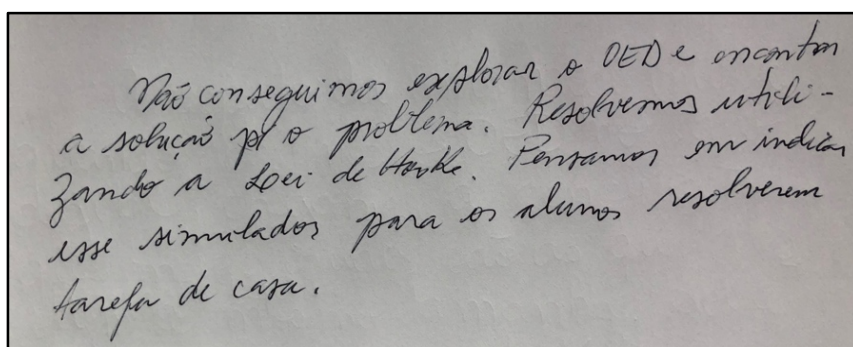 Não conseguimos explorar o OED e encontrar
a solução p/ o problema. Resolvemos utili-
zando a Lei de Hooke. Pensamos em indicar
esse simulador para os alunos resolverem
tarefa de casa.